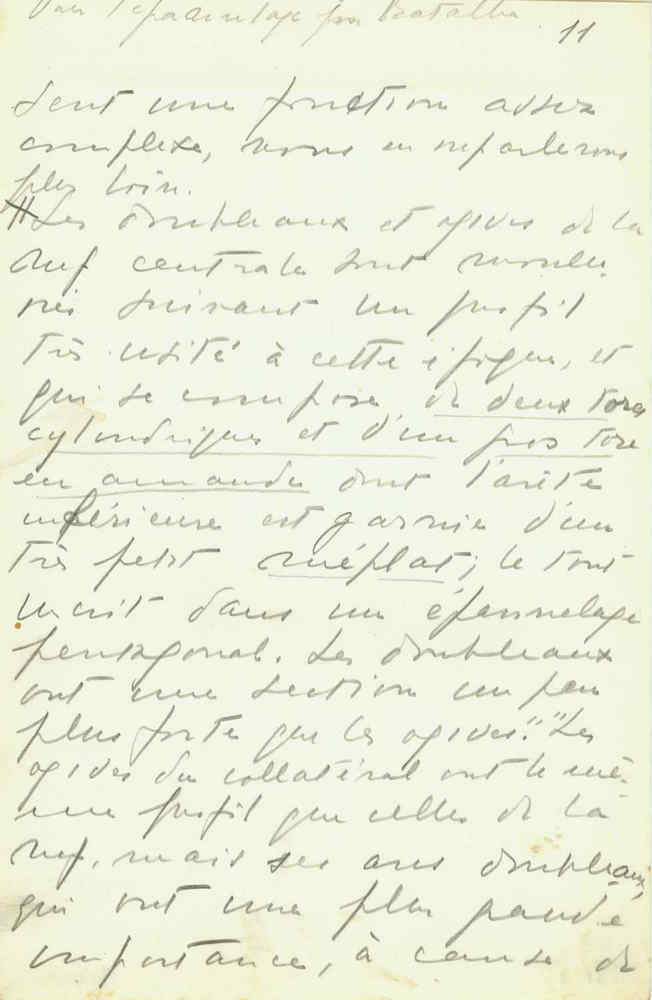 Voir l'épannelage pour Batalha
11
sent une fonction assez
complexe, nous en reparlerons
plus loin.
"Les doubleaux et ogives de la
nef centrale sont moulu-
rés suivant un profil
très usité à cette époque, et
qui se compose de deux tores
cylindriques et d'un gros tore
en amande dont l'arête
inférieure est garnie d'un
très petit méplat; le tout
inscrit dans un épannelage
pentagonal. Les doubleaux
ont une section un peu
plus forte que les ogives." "Les
ogives du collatéral ont le mê-
me profil que celles de la
nef, mais ses arcs doubleaux,
qui ont une plus grande
importance, à cause de